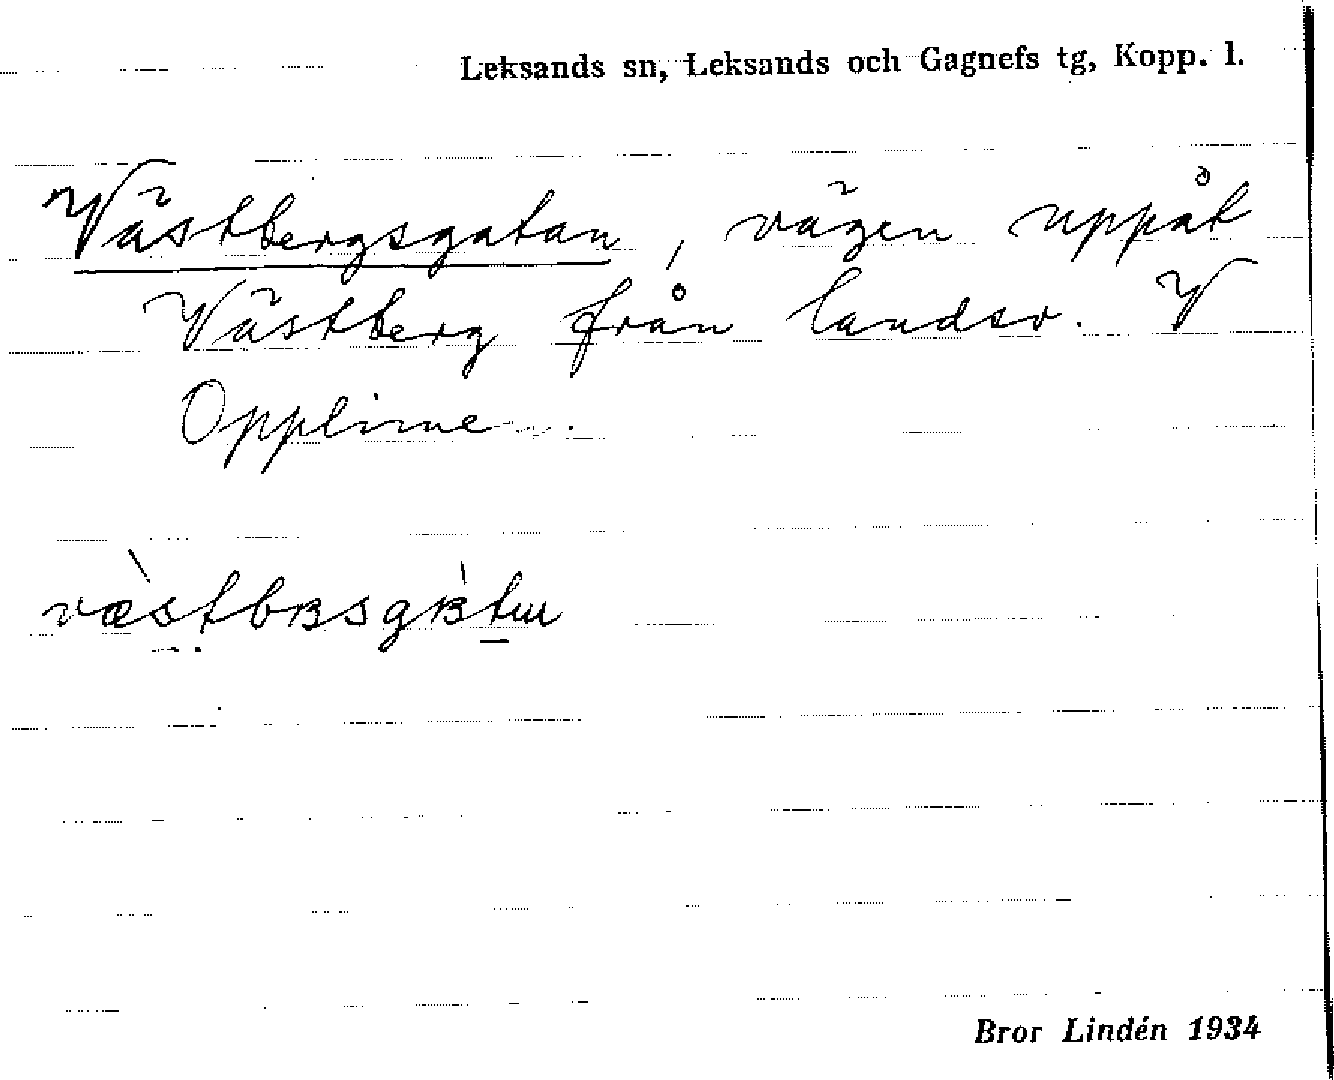 Leksands sn, Leksands och Gagnefs tg, Kopp. l.
Västbergsgatan, vägen uppåt
Västberg från landsv. V
Opplimen.
Bror Lindén 1934